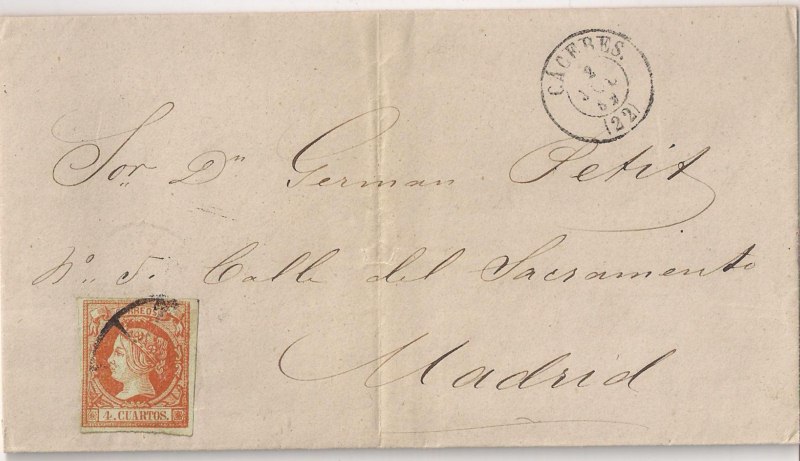 CÁCERES.
2
(22)
Sor Dn German Petit
No. 5. Calle del Sacramento
Madrid
CORREOS
4. CUARTOS.